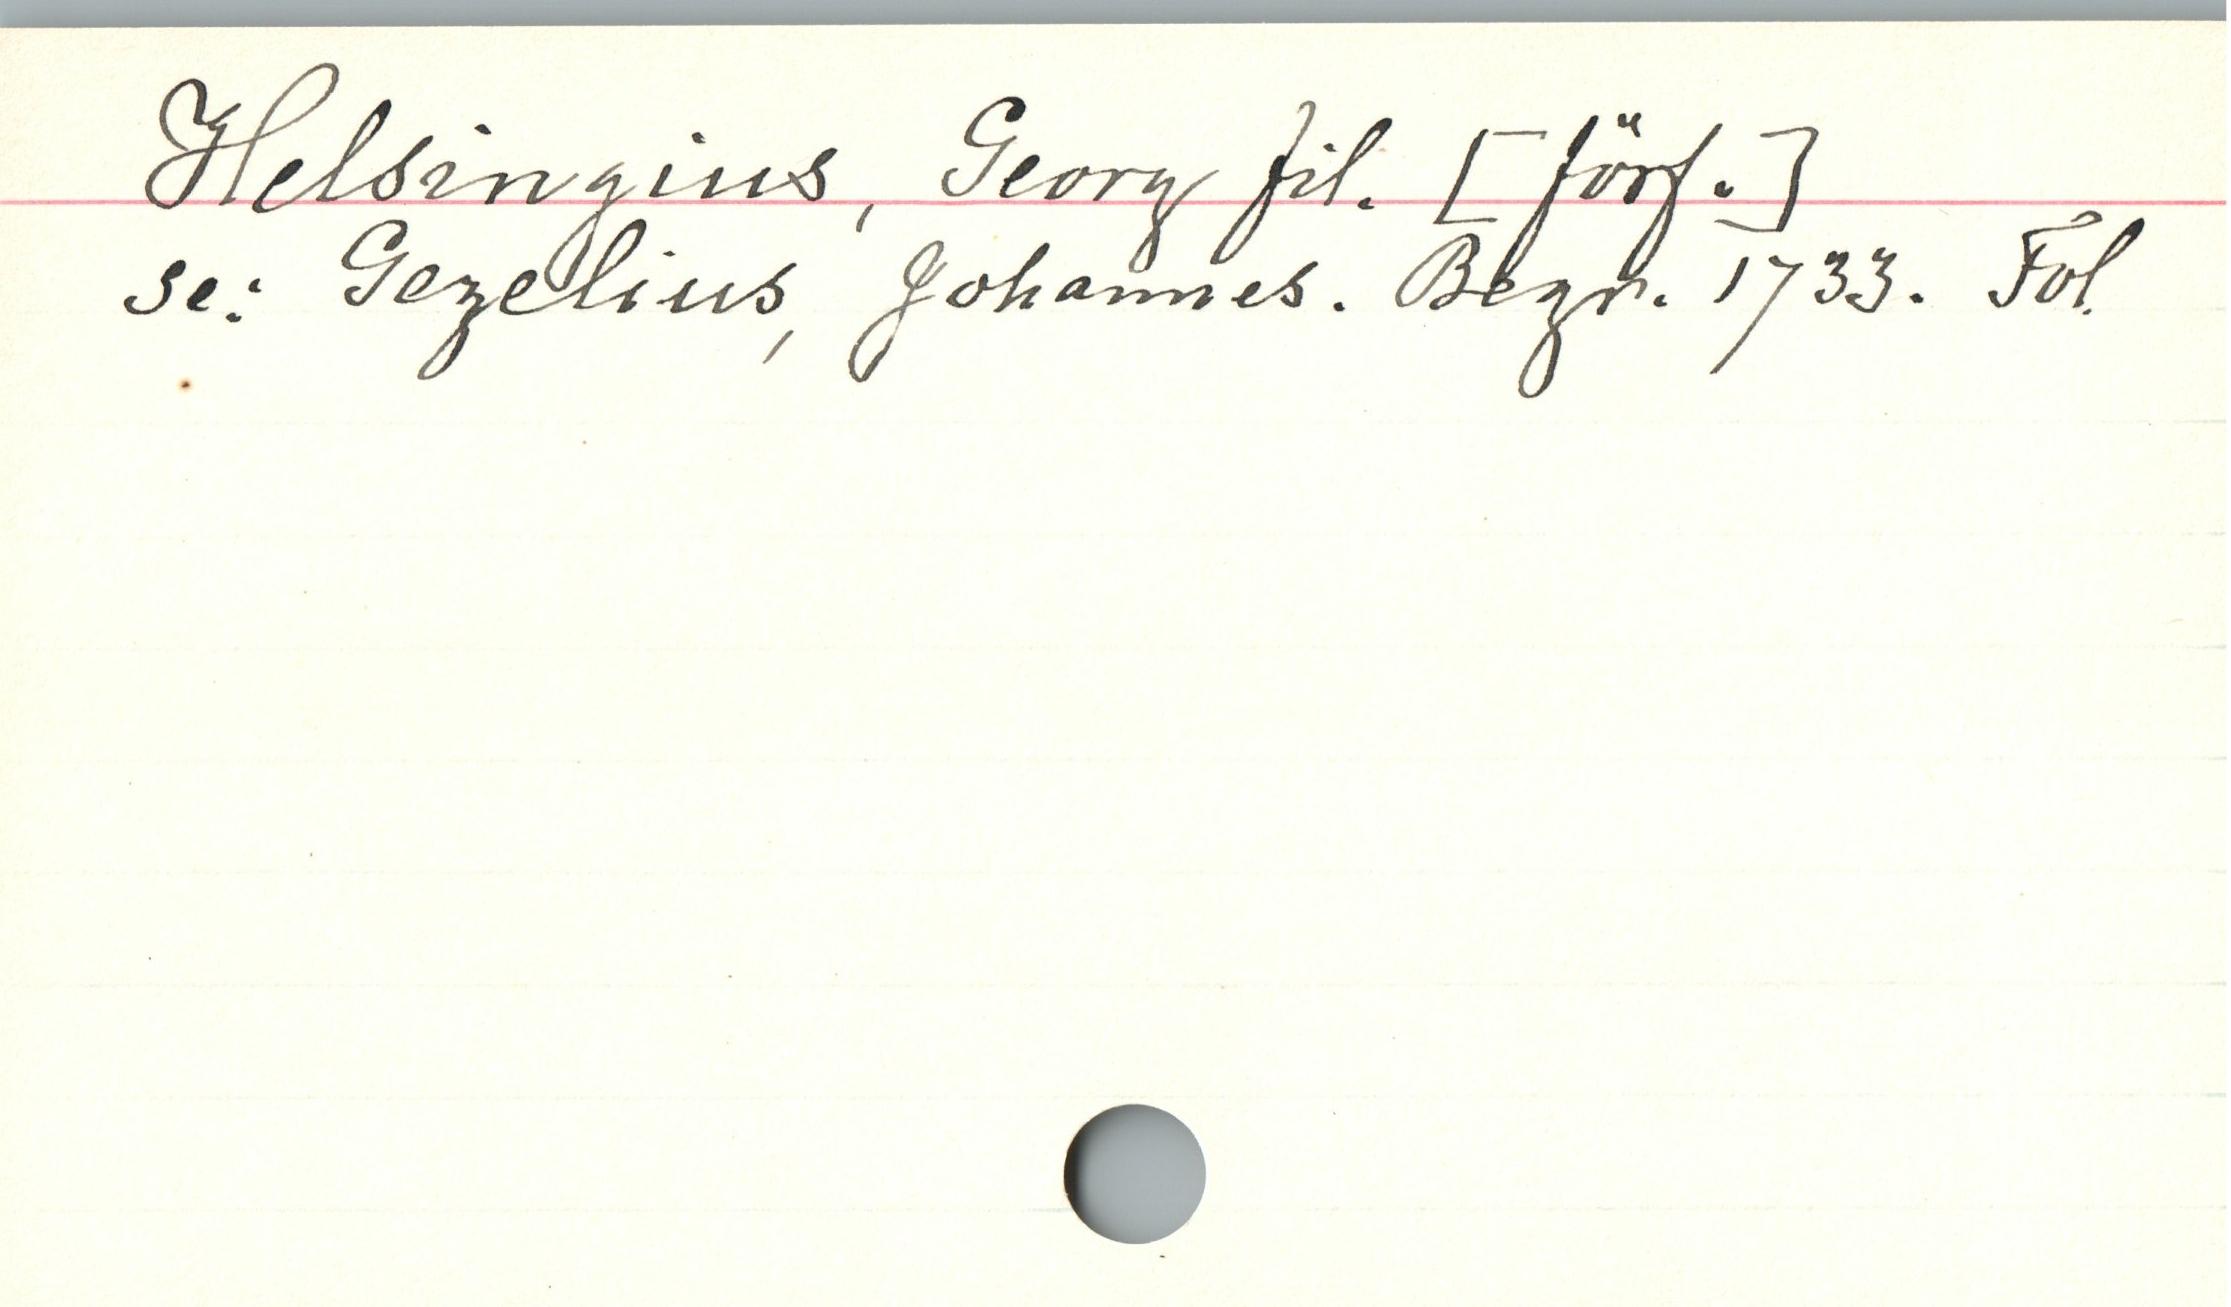 Helsingius, Georg fil. [förf.]
se: Gezelius, Johannes. Begr. 1733. Fol.